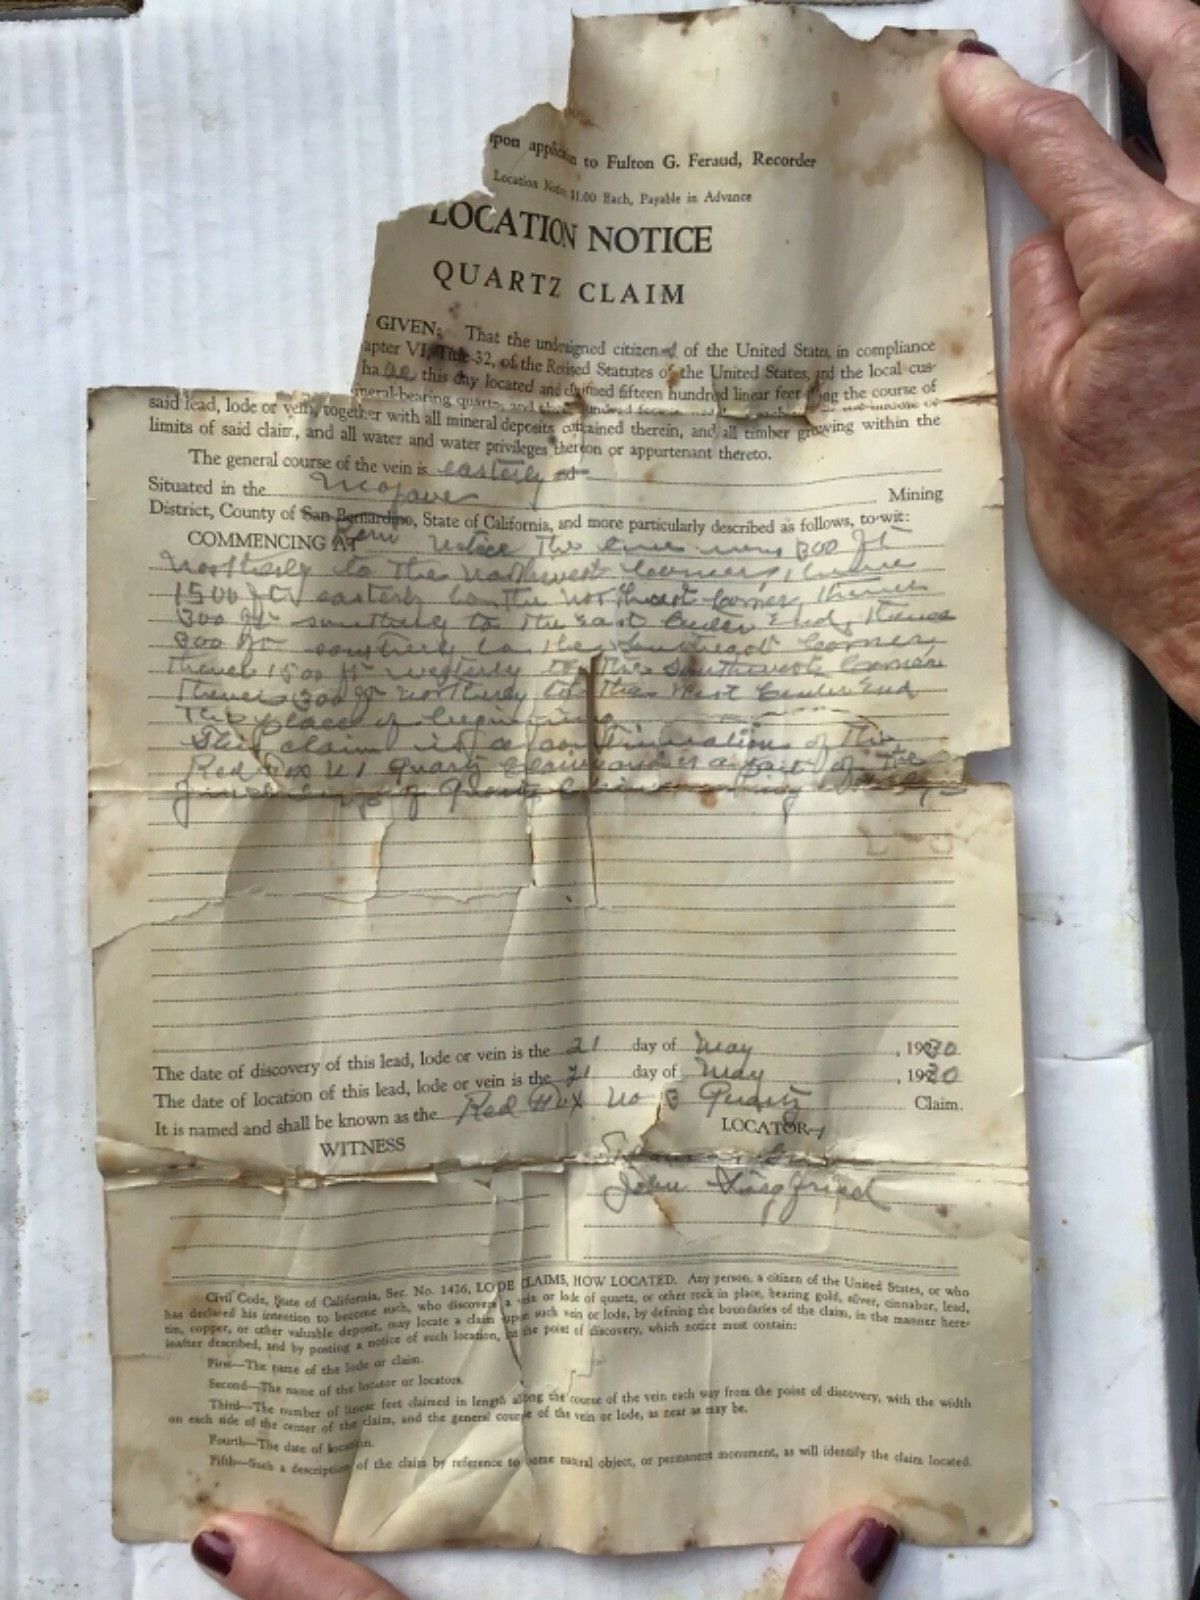 upon application to Fulton G. Feraud, Recorder
Location Notice $1.00 Each, Payable in Advance
LOCATION NOTICE
QUARTZ CLAIM
GIVEN: That the undersigned citizens of the United States, in compliance
apter VI, Title 32, of the Revised Statutes of the United States, and the local cus-
have this day located and claimed fifteen hundred linear feet along the course of
said lead, lode or vein, together with all mineral deposits contained therein, and all timber growing within the
limits of said claim, and all water and water privileges thereon or appurtenant thereto.
The general course of the vein is easterly
Situated in the Mojave Mining
District, County of San Bernardino, State of California, and more particularly described as follows, to-wit:
Kern
COMMENCING AT Notice The line runs 300 ft
Northerly to the Northwest Corner, thence
1500 ft easterly to the Northeast Corner, thence
300 ft southerly to the East Center End, thence
300 ft southerly to the Southeast Corner,
thence 1500 ft westerly to the Southwest Corner
thence 300 ft northerly to the West Center End
The place of beginning
This claim is a continuation of the
Red Quartz Claim and is a part of the
group of Quartz Claims
The date of discovery of this lead, lode or vein is the 21 day of May, 1930.
The date of location of this lead, lode or vein is the 21 day of May, 1930
It is named and shall be known as the Red No Quartz Claim.
WITNESS LOCATORS
John Siegfried
Civil Code, State of California, Sec. No. 1426, LODE CLAIMS, HOW LOCATED. Any person, a citizen of the United States, or who
has declared his intention to become such, who discovers a vein or lode of quartz, or other rock in place, bearing gold, silver, cinnabar, lead,
tin, copper, or other valuable deposit, may locate a claim upon such vein or lode, by defining the boundaries of the claim, in the manner here-
inafter described, and by posting a notice of such location, at the point of discovery, which notice must contain:
First—The name of the lode or claim.
Second—The name of the locator or locators.
Third—The number of linear feet claimed in length along the course of the vein each way from the point of discovery, with the width
on each side of the center of the claim, and the general course of the vein or lode, as near as may be.
Fourth—The date of location.
Fifth—Such a description of the claim by reference to some natural object, or permanent monument, as will identify the claim located.